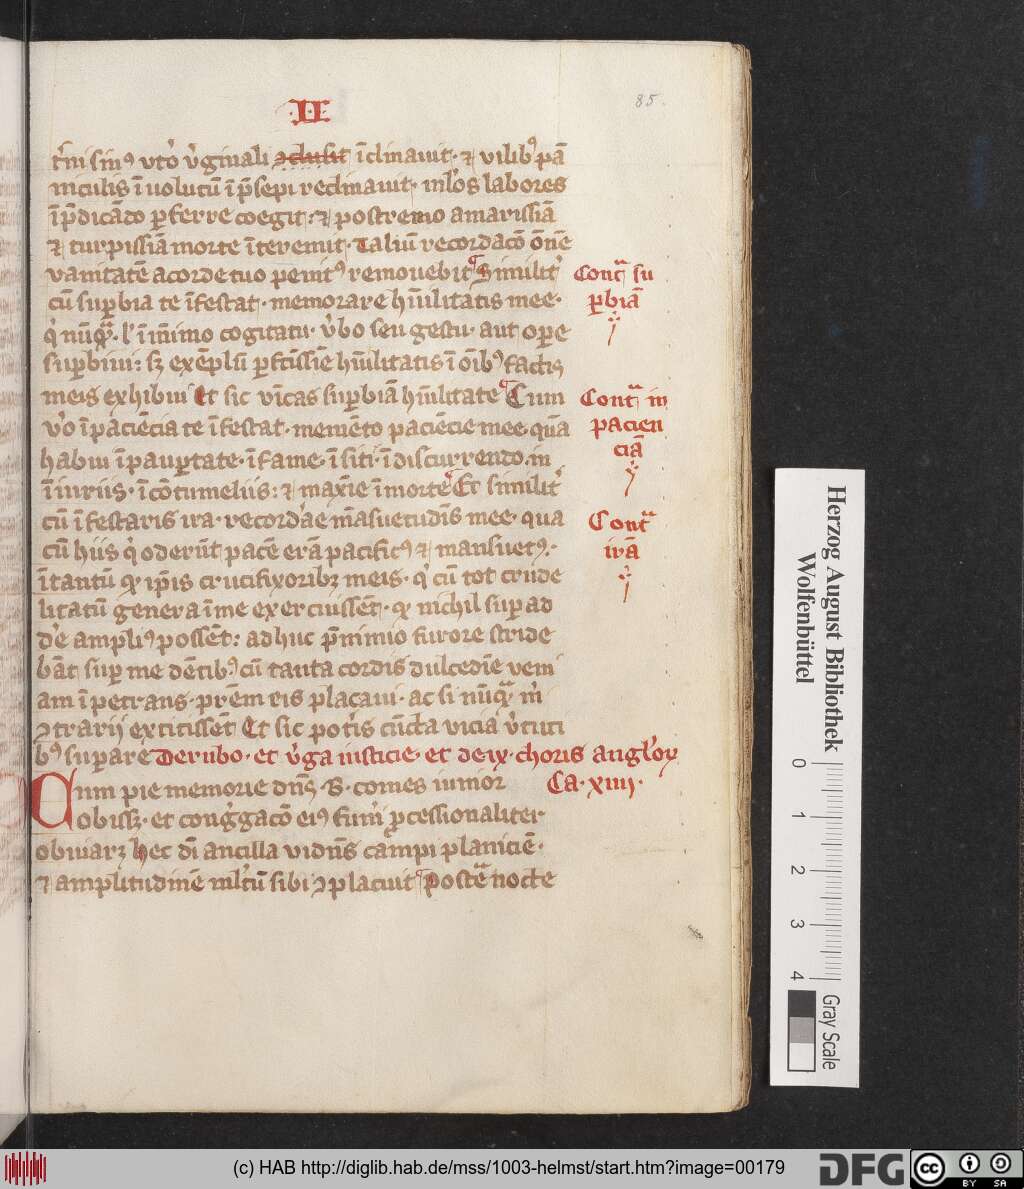 II
85.
t̄ni sinꝰ vtō v̓ginali ꝯclusit īclinauit · ⁊ vilibꝰ pā
niculis īuolutū ī p̄sepi reclinauit · mlt̓os labores
īp̄dicādo ꝑferre coegit : ⁊ postremo amarissīa
⁊ turpissīa morte īteremit · Taliū recordacō om̄ē
vanitatē acorde tuo penitꝰ remouebit Similit̓
cū suꝑbia te īfestat · memorare hūilitatis mee ·
q̓ nūqᷓ · l̓ ī mīmo cogitatu · v̓bo seu gestu · aut oꝑe
suꝑbiui : sꝫ exēplū ꝑfcīssie hūilitatis ī oībꝰ factis
meis exhibui Et sic vīcas suꝑbiā hūilitate Cum
v̓o īpaciēcia te īfestat · memēto paciēcie mee · quā
habui ī pauꝑtate · ī fame · ī siti · ī discurrendo · in
īiuriis · ī cōtumeliis : ⁊ maxīe ī morte Et similit̓
cū īfestaris ira · recordāe māsuetudīs mee · qua
cū hiis q̓ oderūt pacē erā pacificꝰ ⁊ mansuetꝰ ·
ītantū qꝫ ip̄is crucifixoribꝫ meis · q̓ cū tot crude
litatū genera ī me exercuissēt · qꝫ nichil suꝑad
dē ampliꝰ possēt : adhuc p̄nimio furore stride
bāt suꝑ me dētibꝰ cū tanta cordis dulcedīe veni
am īpetrans · prēm eis placaui · ac si nūqᷓ m̄
ꝯtrarij extitissēt Et sic potis cūcta vicia v̓tuti
bꝰ suꝑare De rubo · et v̓ga iusticie · et de ix · choris angl̓oꝝ
Cum pie memorie dn̄s · B · comes iunior
Ca · xiiij ·
obissꝫ · et cong̓gacō eiꝰ fun̄i ꝓcessionaliter
obiuarꝫ hec dī ancilla vidn̄s campi planiciē ·
⁊ amplitudinē ml̓tū sibi ꝯplacuit postᷓ nocte
Contᷓ su
ꝑbiā
Contᷓ in
pacien
ciā
Contᷓ
irā
Herzog August Bibliothek
Wolfenbüttel
0 1 2 3 4
Gray Scale
(c) HAB http://diglib.hab.de/mss/1003-helmst/start.htm?image=00179
DFG
cc BY SA